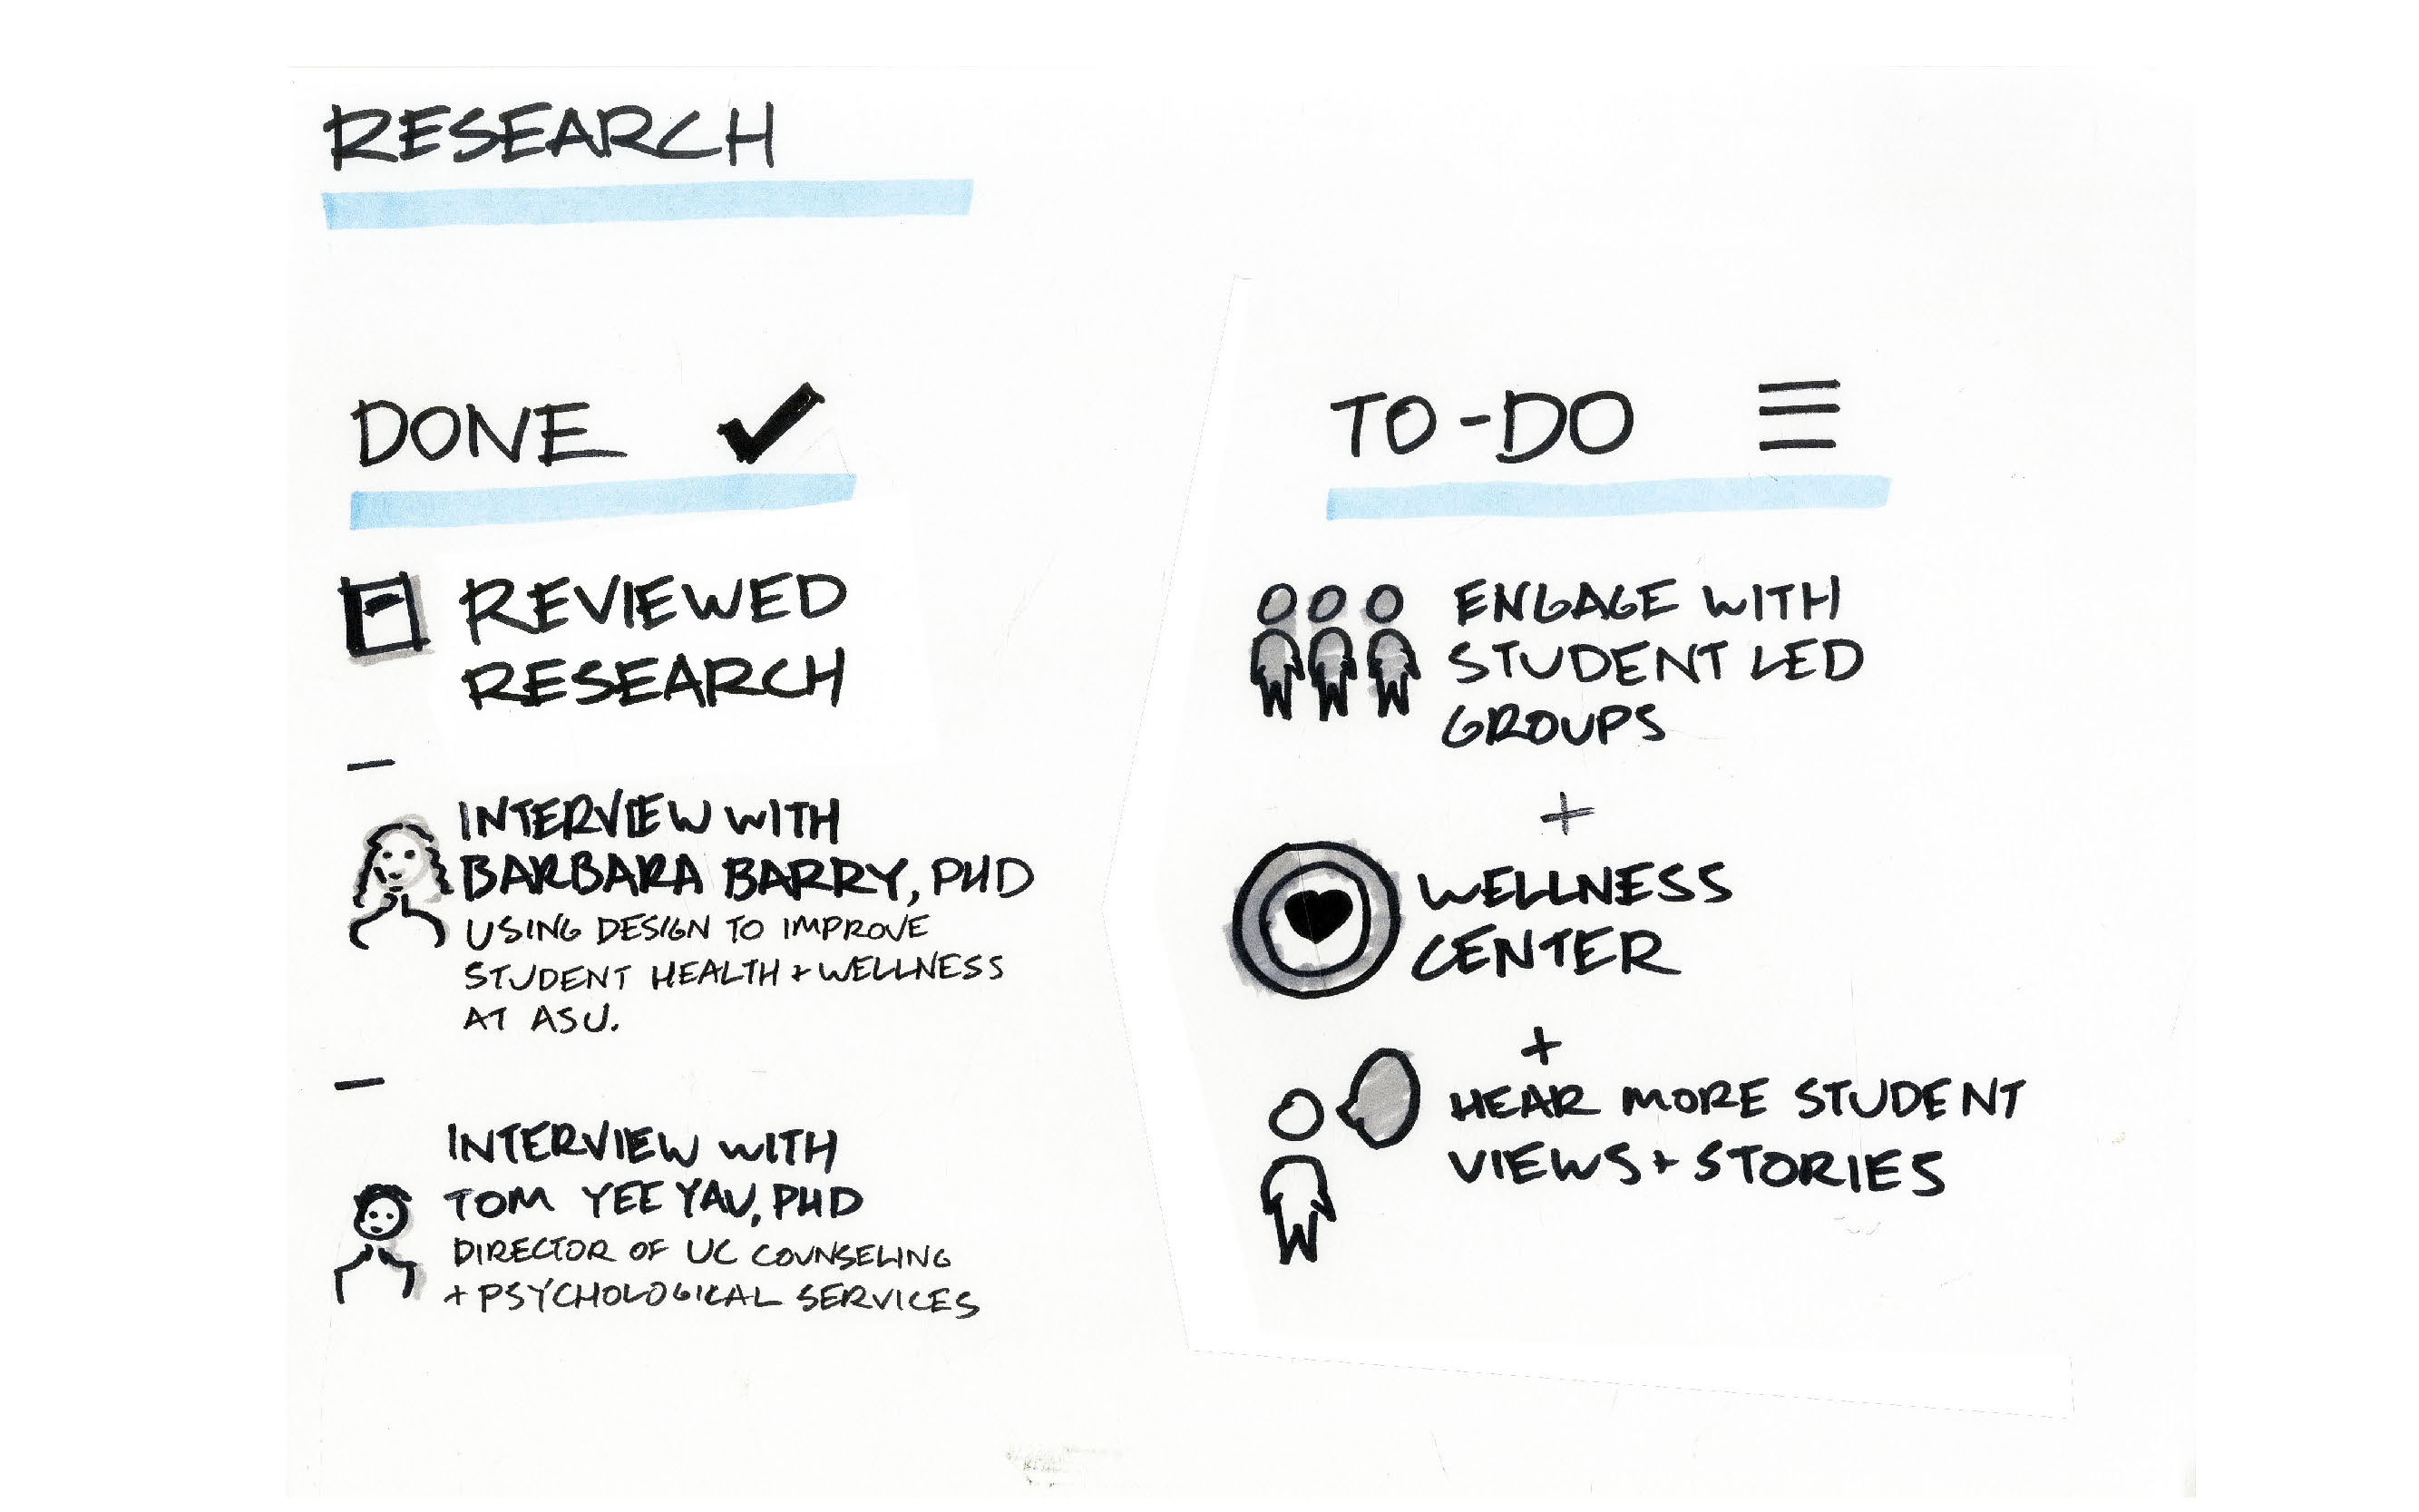 RESEARCH
DONE
REVIEWED
RESEARCH
INTERVIEW WITH
BARBARA BARRY, PHD
USING DESIGN TO IMPROVE
STUDENT HEALTH + WELLNESS
AT ASU.
INTERVIEW WITH
TOM YEE YAU, PHD
DIRECTOR OF UC COUNSELING
+ PSYCHOLOGICAL SERVICES
TO-DO
ENGAGE WITH
STUDENT LED
GROUPS
+
WELLNESS
CENTER
+
HEAR MORE STUDENT
VIEWS + STORIES